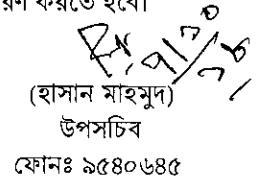 করতে হবে।
(হাসান মাহমুদ)
উপসচিব
ফোনঃ ৯৫৪০৬৪৫